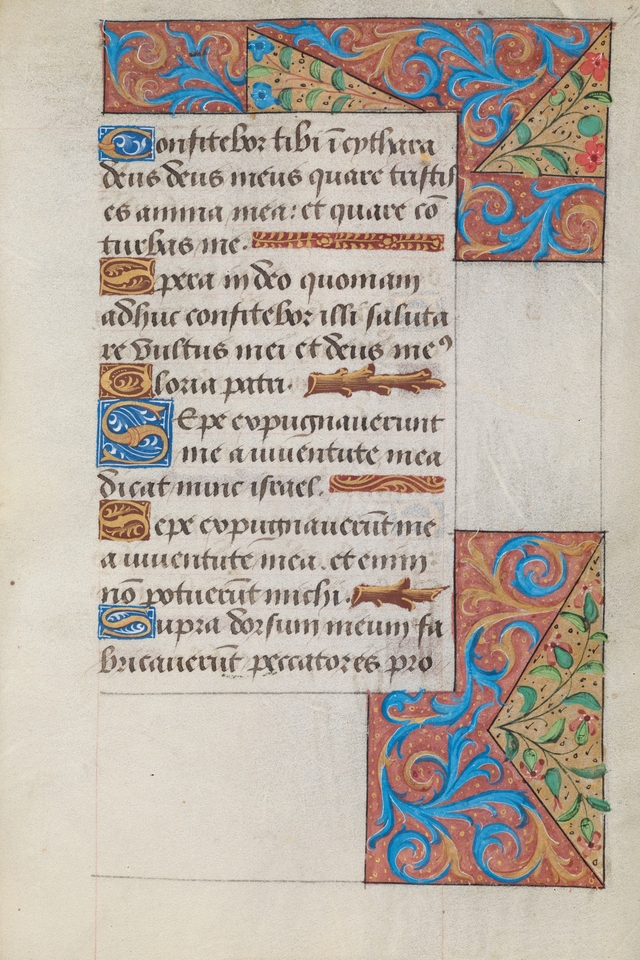 Confitebor tibi ī cythara
deus deus meus quare tristis
es anima mea: et quare cō
turbas me.
Spera in deo quoniam
adhuc confitebor illi saluta
re vultus mei et deus meꝰ
Gloria patri.
SEpe expugnauerunt
me a iuuentute mea
dicat nunc israel.
Sepe expugnauerūt me
a iuuentute mea. et enim
nō potuerūt michi.
Supra dorsum meum fa
bricauerūt peccatores pro